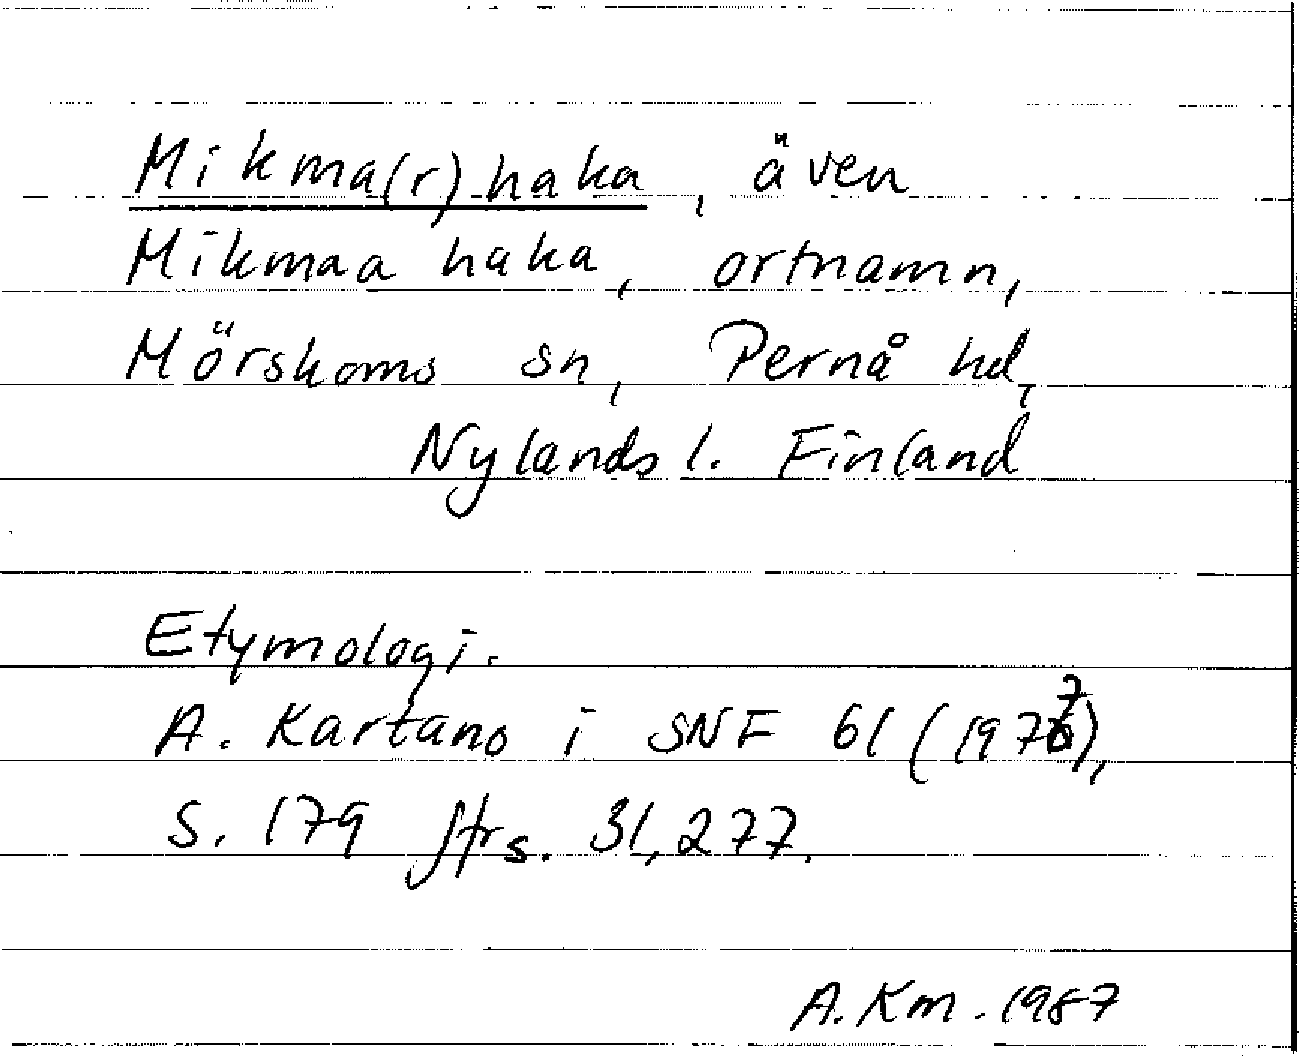 Mikma(r)haka, även
Mikmaa haka, ortnamn,
Mörskoms sn, Pernå hd,
Nylands l. Finland
Etymologi.
A. Kartano i SNF 61 (1977),
S. 179 jfrs. 31, 277.
A. Km. 1987